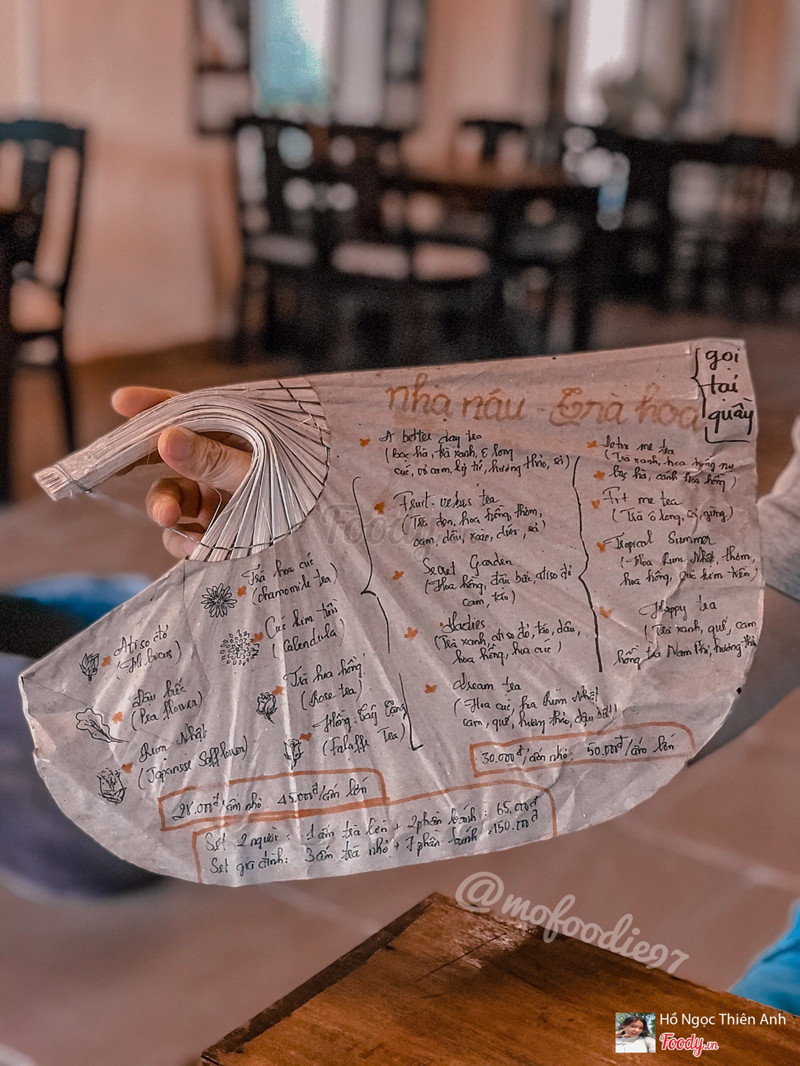 nhà nấu - Trà hoa
gọi
tại
quầy
Atiso đỏ
(Hibicus)
Đậu biếc
(Pea flower)
Rum Nhật
(Japanese Safflower)
Trà hoa cúc
(chamomile tea)
Cúc kim tiền
(Calendula)
Trà hoa hồng
(Rose tea)
Hồng Tây Tạng
Tea)
28.000đ/ấm nhỏ 45.000đ/ấm lớn
A better day tea
(bạc hà, trà xanh, ô long
cúc, vỏ cam, kỷ tử, hương thảo, sả)
Fruit-ve tea
(Trà đen, hoa hồng, thơm,
cam, dâu, sả)
Secret Garden
(Hoa hồng, đậu biếc, atiso đỏ
cam, táo)
Hadies
(Trà xanh, atiso đỏ, táo, dâu,
hoa hồng, hoa cúc)
Dream tea
(Hoa cúc, hoa Rum Nhật
cam, quế, hương thảo,
Lotus me tea
(Trà xanh, hoa hồng
bạc hà, cánh hoa hồng)
Fit me tea
(Trà ô long, gừng)
Tropical Summer
(Hoa Rum Nhật, thơm,
hoa hồng, cúc kim tiền)
Happy tea
(Trà xanh, quế, cam
hồng trà Nam Phi, hương thảo
30.000đ/ấm nhỏ. 50.000đ/ấm lớn
Set 2 người: 1 ấm trà lớn + 2 phần bánh: 65.000đ
Set gia đình: 3 ấm trà nhỏ + 7 phần bánh 150.000đ
@mofoodie97
Hồ Ngọc Thiên Anh
Foody.vn